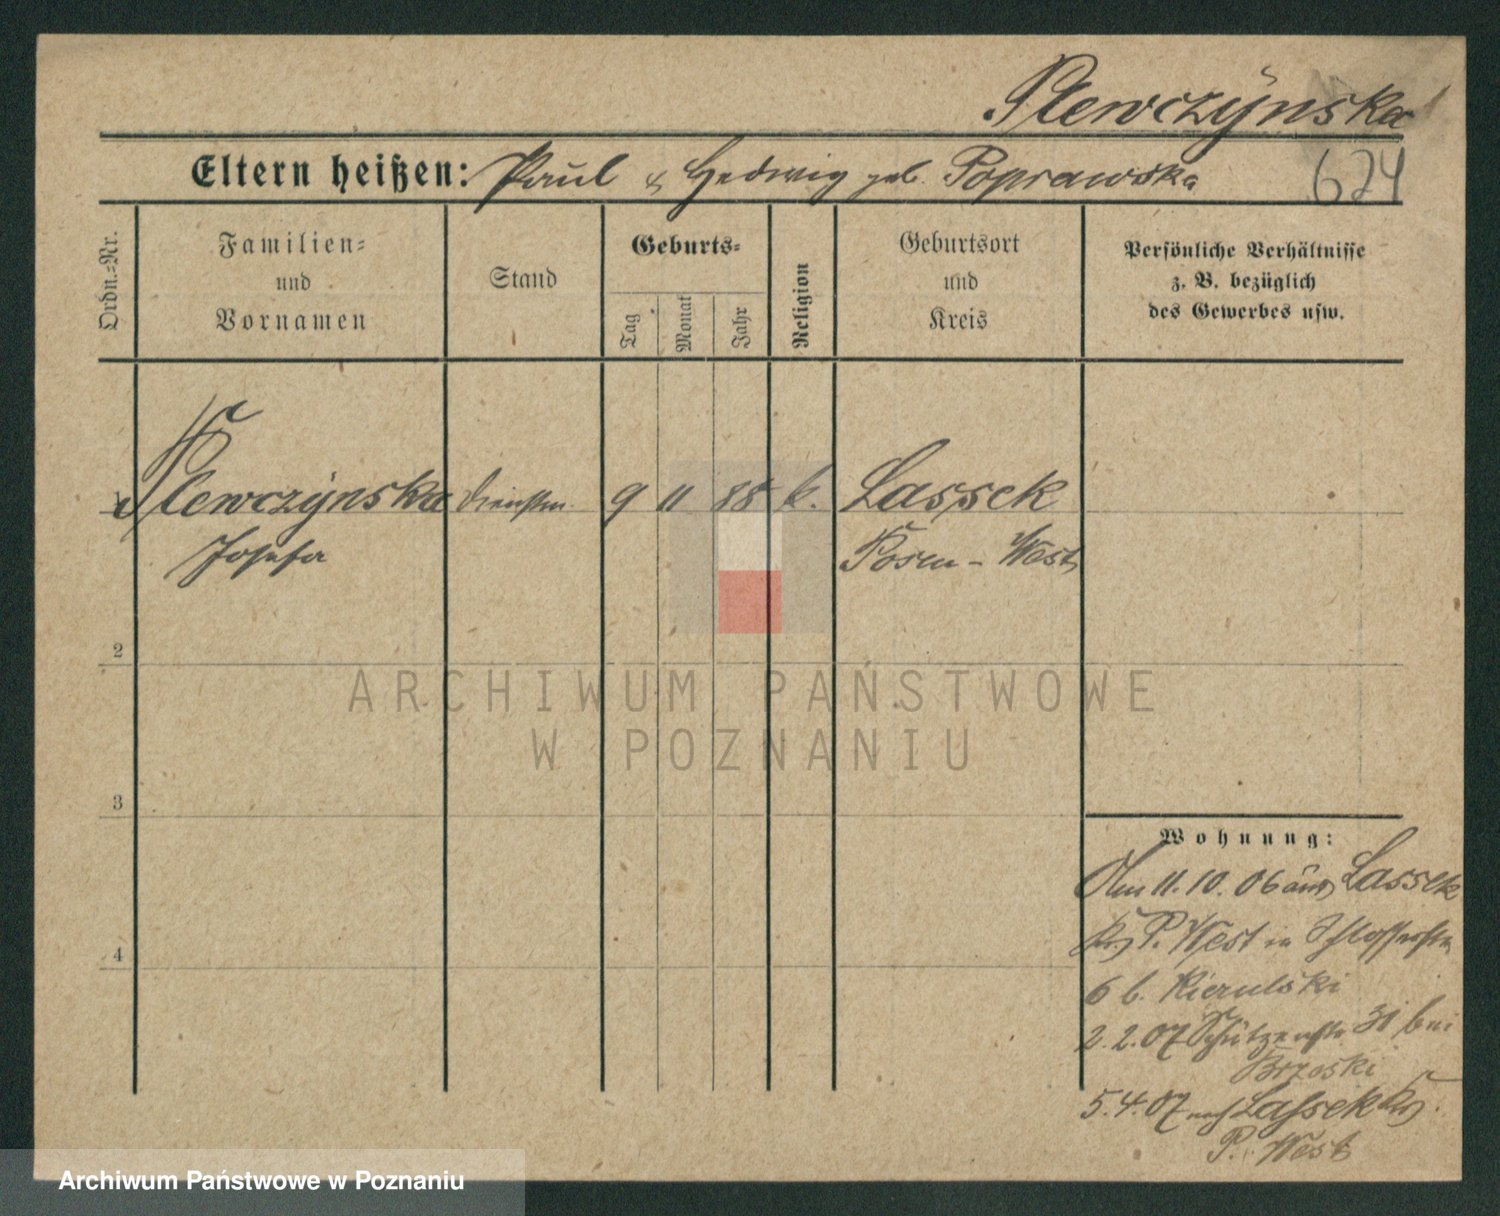 Plewczÿnska
Eltern heißen: Paul & Hedwig geb. Poprawska 624
Ordn.=Nr.
Familien=
und
Vornamen
Stand
Geburts=
Tag
Monat
Jahr
Religion
Geburtsort
und
Kreis
Persönliche Verhältnisse
z. B. bezüglich
des Gewerbes usw.
1 Plewczÿnska Dienstm. 9 11 88 k. Lassek
Josefa Posen - West
2
3
4
Wohnung:
Am 11. 10. 06 aus Lassek
Krs P. West in Schlosserstr
6 b. Kierulski
2. 2. 07 Schützenstr 31 bei
Brzoski
5. 4. 07 nach Lassek Krs.
P. West
ARCHIWUM PAŃSTWOWE
W POZNANIU
Archiwum Państwowe w Poznaniu